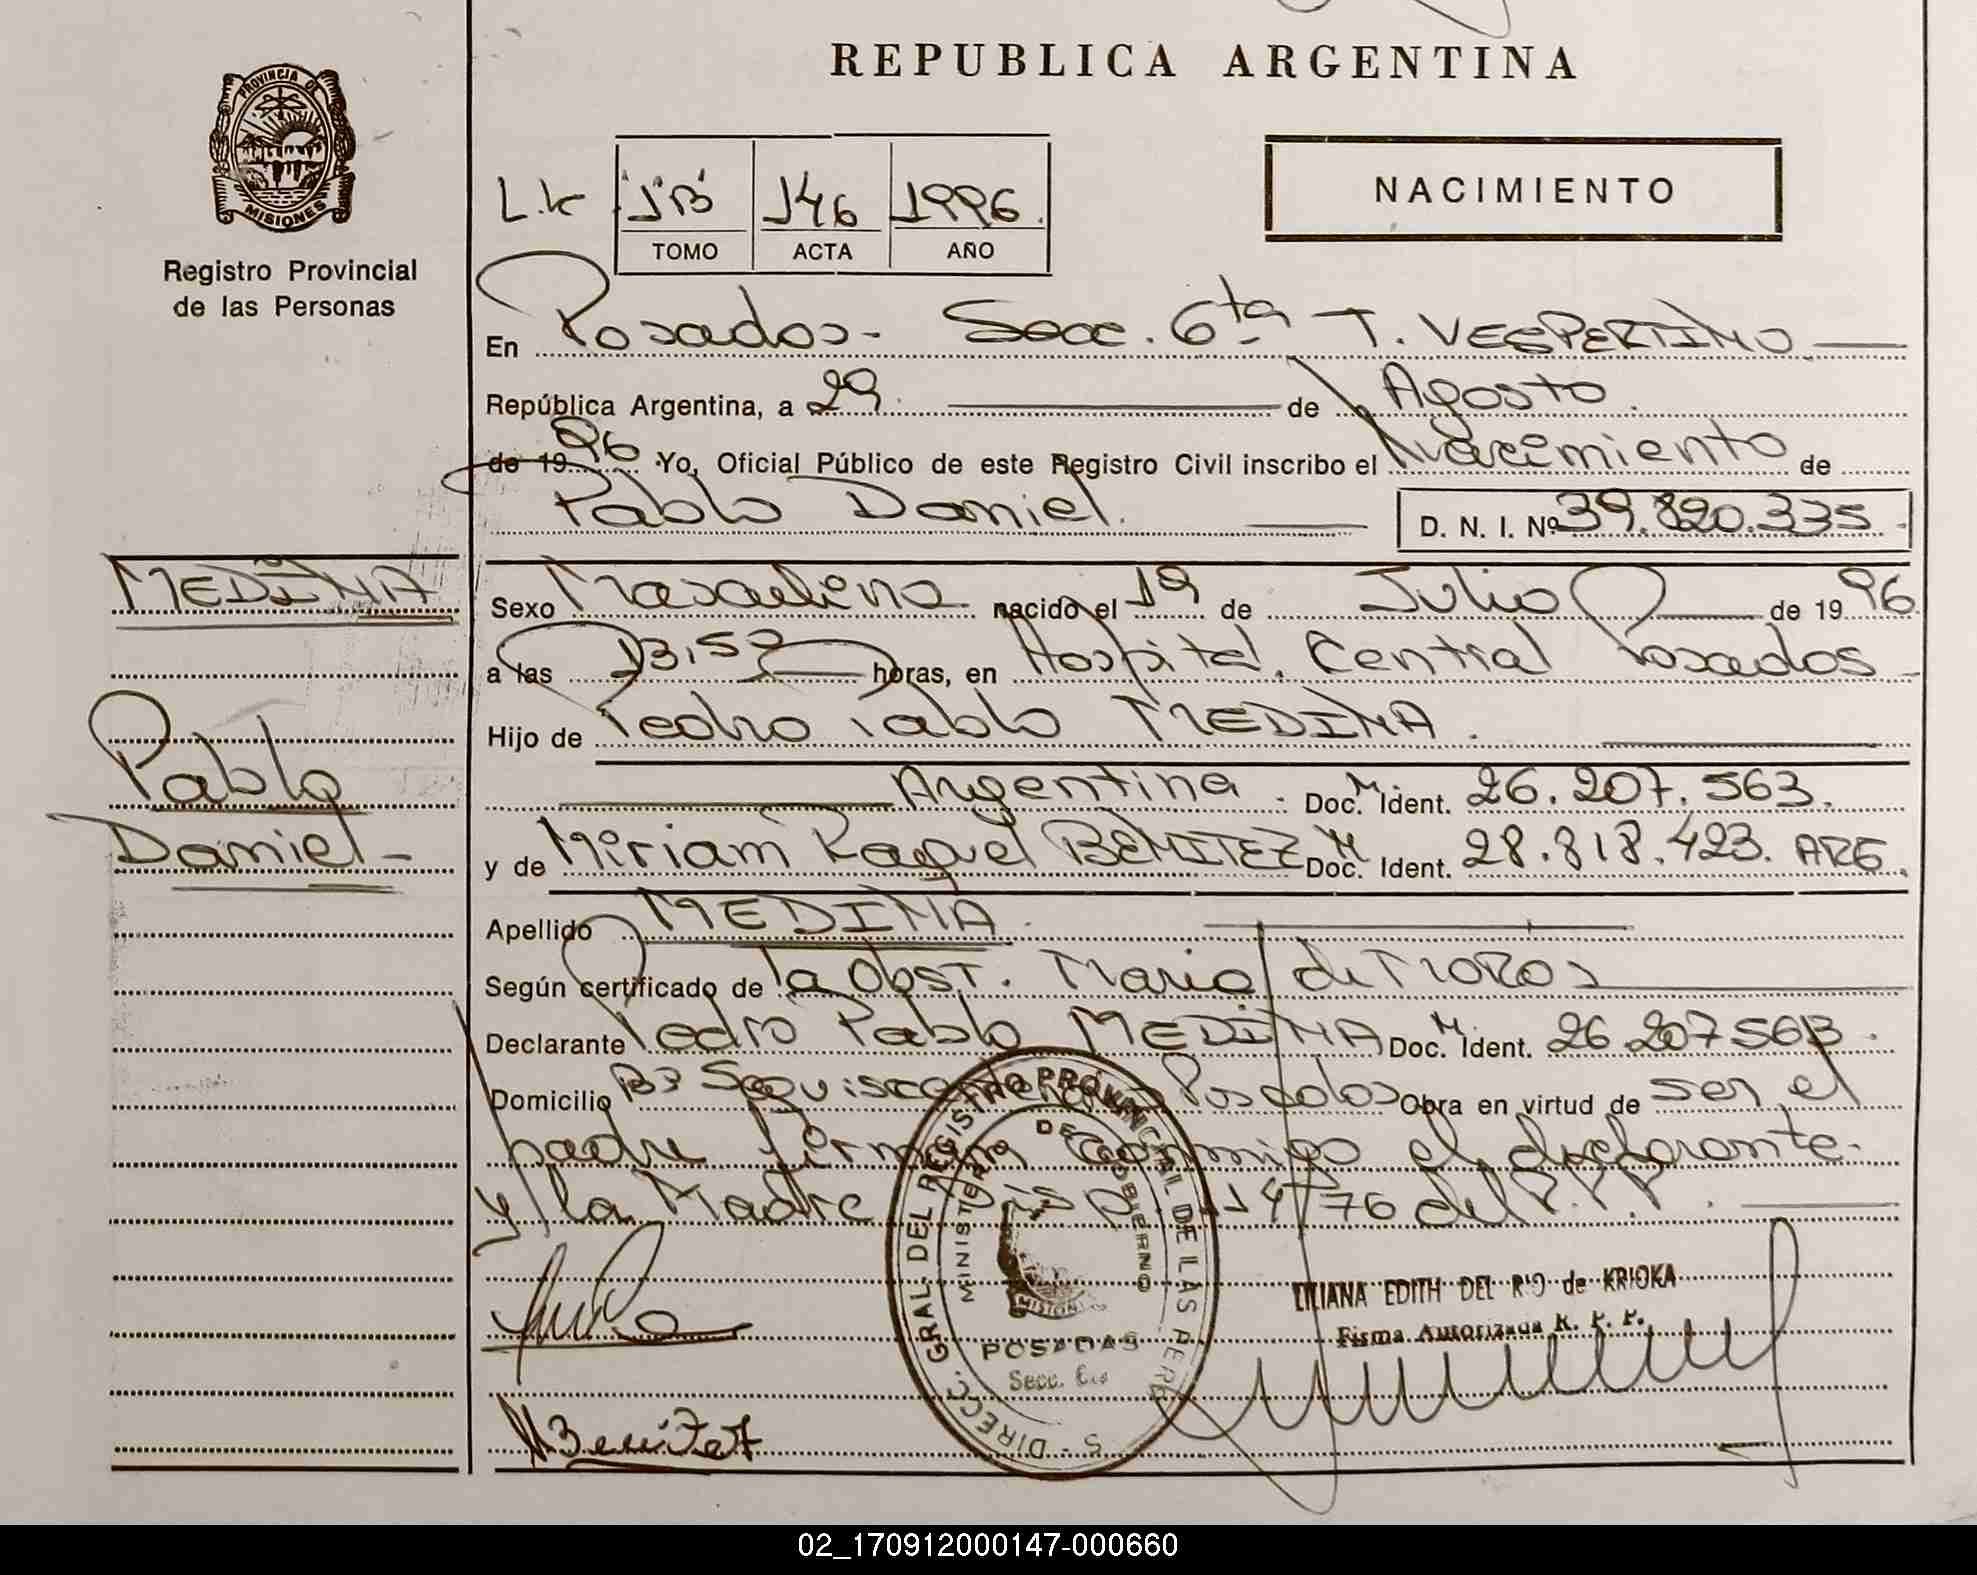 REPUBLICA ARGENTINA
PROVINCIA DE
MISIONES
Registro Provincial
de las Personas
NACIMIENTO
146 1996.
TOMO ACTA AÑO
En Posadas- Secc. 6ta T. VESPERTINO
República Argentina, a 29. de Agosto.
de 19 96 Yo, Oficial Público de este Registro Civil inscribo el Nacimiento de
Pablo Daniel. D. N. I. Nº 39.820.335
MEDINA
Pablo
Daniel-
Sexo Masculino nacido el 19 de Julio de 19 96
a las horas, en Hospital Central Posadas
Hijo de Pedro Pablo MEDINA.
Argentina. Doc. M. Ident. 26.207.563.
y de Miriam Raquel BENITEZ Doc. M. Ident. 28.818.423. ARG.
Apellido MEDINA
Según certificado de la Obst. Maria de
Declarante Pedro Pablo MEDINA Doc. M. Ident. 26.207563.
Domicilio Posadas Obra en virtud de ser el
padre firman conmigo el declarante.
y la Madre 14/76 del R.P.P.
DIRECC. GRAL. DEL REGISTRO PROVINCIAL DE LAS PERS
MINISTERIO DE GOBIERNO
MISIONES
POSADAS
Secc. 6ta
LILIANA EDITH DEL RIO de KRIOKA
Firma Autorizada R. P. P.
M Benitez
02_170912000147-000660